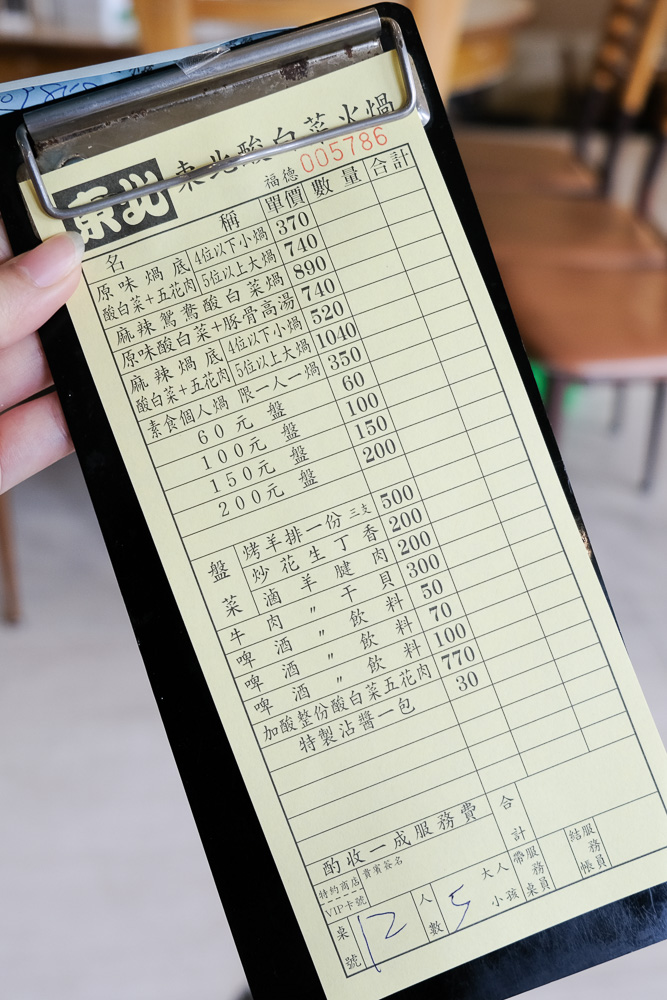 東北酸白菜火鍋
東北
福德 005786
名稱 單價 數量 合計
原味鍋底 4位以下小鍋 370
酸白菜+五花肉 5位以上大鍋 740
麻辣鴛鴦酸白菜鍋 890
原味酸白菜+豚骨高湯 740
麻辣鍋底 4位以下小鍋 520
酸白菜+五花肉 5位以上大鍋 1040
素食個人鍋 限一人一鍋 350
60元盤 60
100元盤 100
150元盤 150
200元盤 200
盤菜
烤羊排一份 三支 500
炒花生丁香 200
滷羊腱肉 200
牛肉〃干貝 300
啤酒〃飲料 50
啤酒〃飲料 70
啤酒〃飲料 100
加酸整份酸白菜五花肉 770
特製沾醬一包 30
酌收一成服務費 合計
特約商店 貴賓簽名
VIP卡號
桌號 12 人數 5 大人 小孩 帶桌 服務員 結帳 服務員